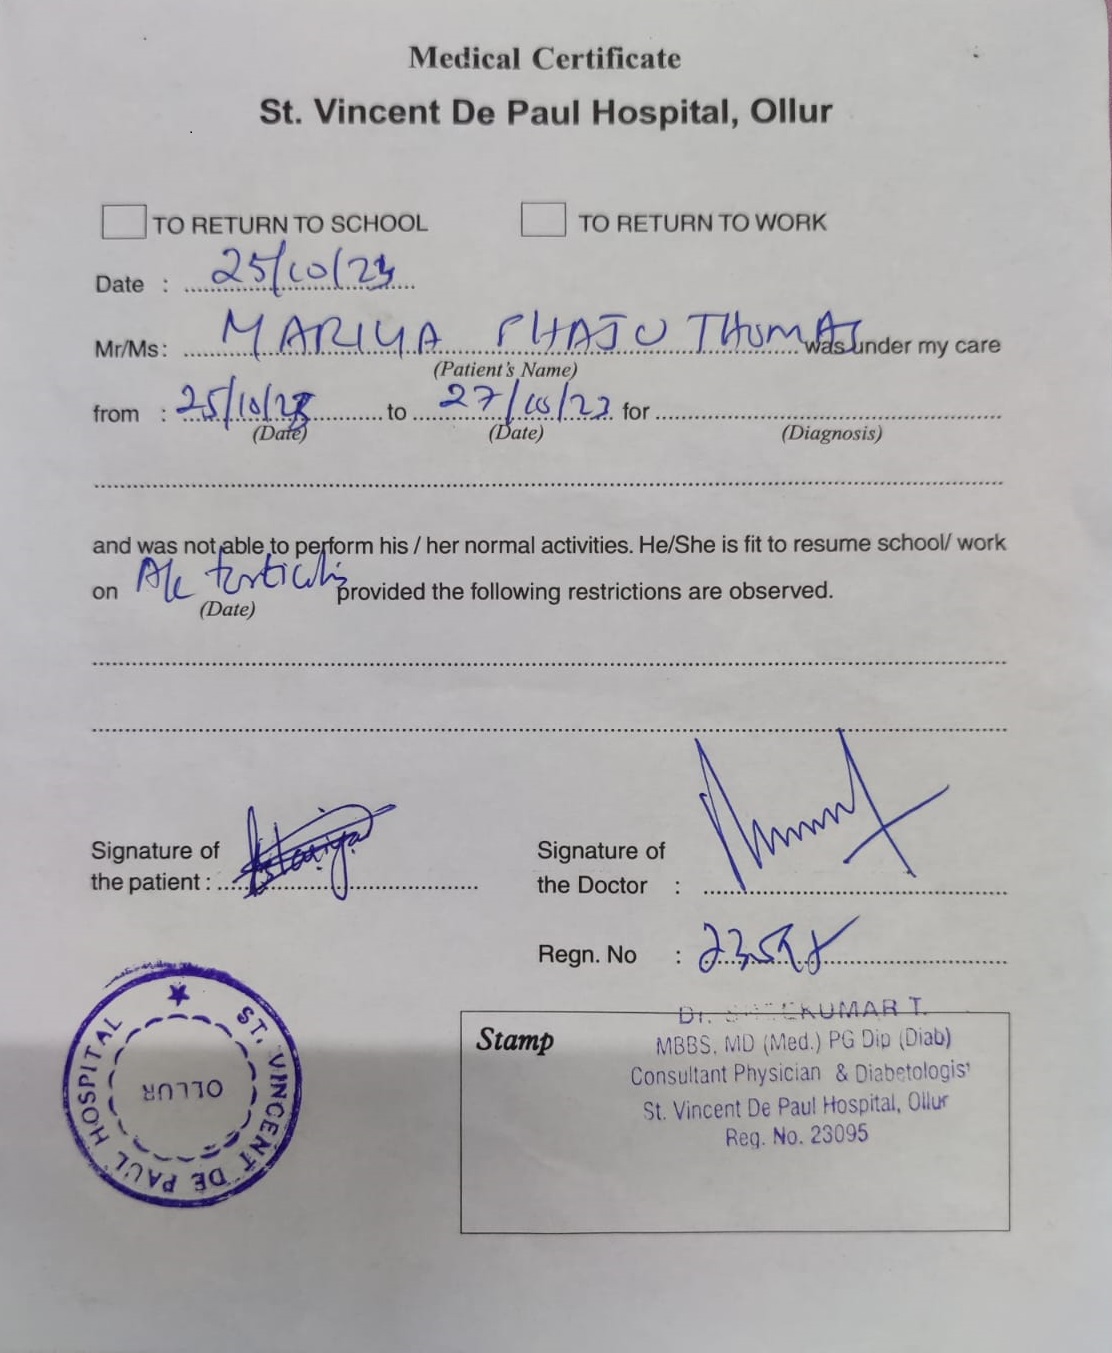 Medical Certificate
St. Vincent De Paul Hospital, Ollur
TO RETURN TO SCHOOL TO RETURN TO WORK
Date : 25/10/23
Mr/Ms: MARIYA SHAJU THOMAS was under my care
(Patient's Name)
from : 25/10/23 to 27/10/23 for
(Date) (Date) (Diagnosis)
and was not able to perform his / her normal activities. He/She is fit to resume school/ work
on provided the following restrictions are observed.
(Date)
Signature of
the patient :
Signature of
the Doctor :
Regn. No :
ST. VINCENT DE PAUL HOSPITAL
OLLUR
Stamp
Dr. KUMAR T.
MBBS, MD (Med.) PG Dip (Diab)
Consultant Physician & Diabetologist
St. Vincent De Paul Hospital, Ollur
Reg. No. 23095